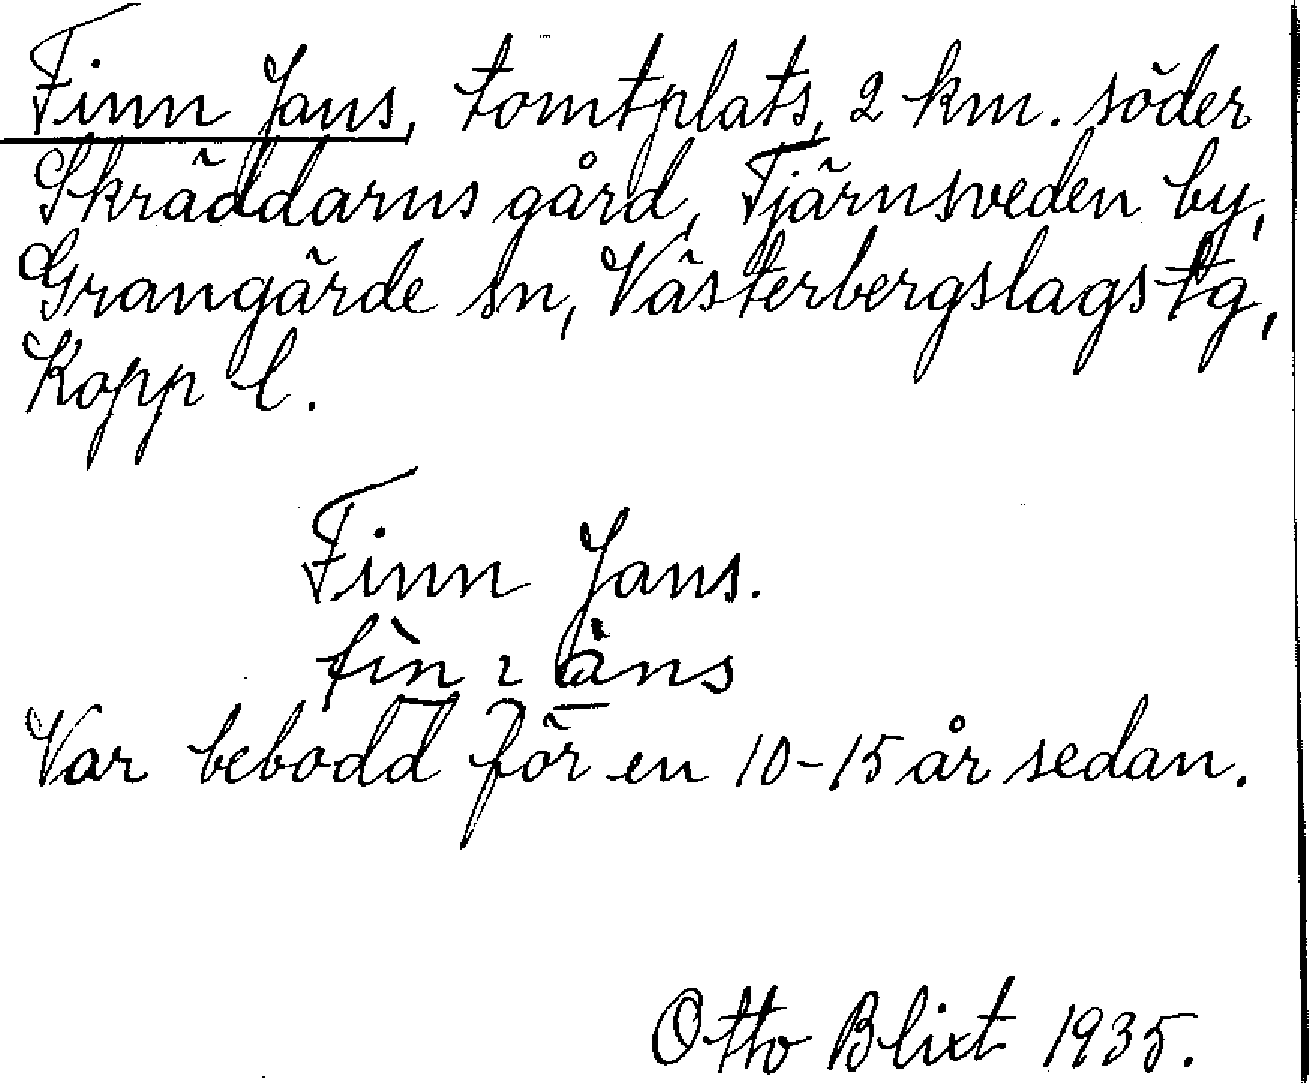 Finn Jans, tomtplats, 2 km. söder
Skräddarns gård, Tjärnsveden by,
Grangärde sn, Västerbergslags tg,
Kopp l.
Finn Jans.
Var bebodd för en 10-15 år sedan.
Otto Blixt 1935.